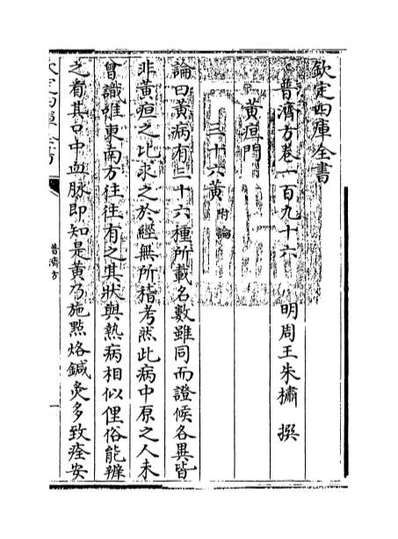 欽定四庫全書
普濟方卷一百九十六
明周王朱橚 撰
黄疸門
三十六黄 附論
論曰黄病有三十六種所載名數雖同而證候各異皆
非黄疸之比求之於經無所稽考然此病中原之人未
曾識惟東南方往往有之其狀與熱病相似俚俗能辨
之看其口中血脉即知是黄乃施㸃烙鍼灸多致痊安
普濟方
一